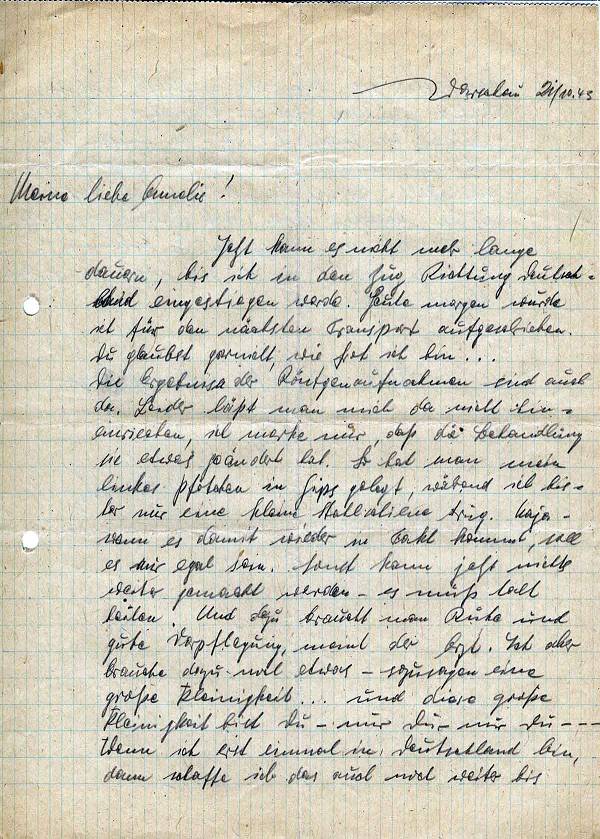 Warschau 21/10.43
Meine liebe Annelie!
Jetzt kann es nicht mehr lange
dauern, bis ich in den Zug Richtung Deutsch-
land eingestiegen werde. Heute morgen wurde
ich für den nächsten Transport aufgeschrieben.
Du glaubst garnicht, wie froh ich bin...
Die Ergebnisse der Röntgenaufnahmen sind auch
da. Leider läßt man mich da nicht hin-
einsehen, ich merke nur, daß die Behandlung
sich etwas geändert hat. So hat man mein
linkes Pfötchen in Gips gelegt, während ich bis-
her nur eine kleine trug. Naja-
wenn es damit wieder in Takt kommt, soll
es mir egal sein. Sonst kann jetzt nichts
weiter gemacht werden - es muß halt
heilen. Und dazu braucht man Ruhe und
gute Verpflegung, meint der Arzt. Ich aber
brauche dazu noch etwas - sozusagen eine
große Kleinigkeit... und diese große
Kleinigkeit bist Du - nur Du - nur Du ---
Wenn ich erst einmal in Deutschland bin,
dann schaffe ich das auch noch weiter bis